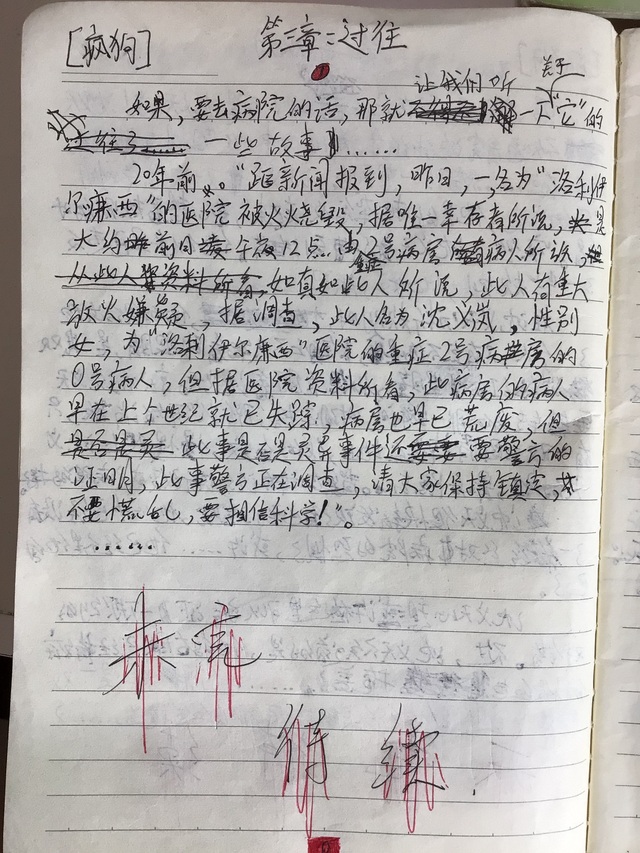 [疯狗]
第三章:过往
让我们听
关于
如果,要去病院的话,那就一下"它"的
一些故事……
20年前。"距新闻报到,昨日,一名为"洛利伊
尔廉西"的医院被火烧毁,据唯一幸存者所说,是
大约前日午夜12点 由2号病房病人所放,
如真如此人所说,此人有重大
放火嫌疑,据调查,此人名为沈义岚,性别
女,为"洛利伊尔廉西"医院的重症2号病房的
0号病人,但据医院资料所看,此病房的病人
早在上个世纪就已失踪,病房也早已荒废,但
此事是否是灵异事件还要警方的
证明,此事警方正在调查,请大家保持镇定,
不要慌乱,要相信科学!"。
……
未完
待续.